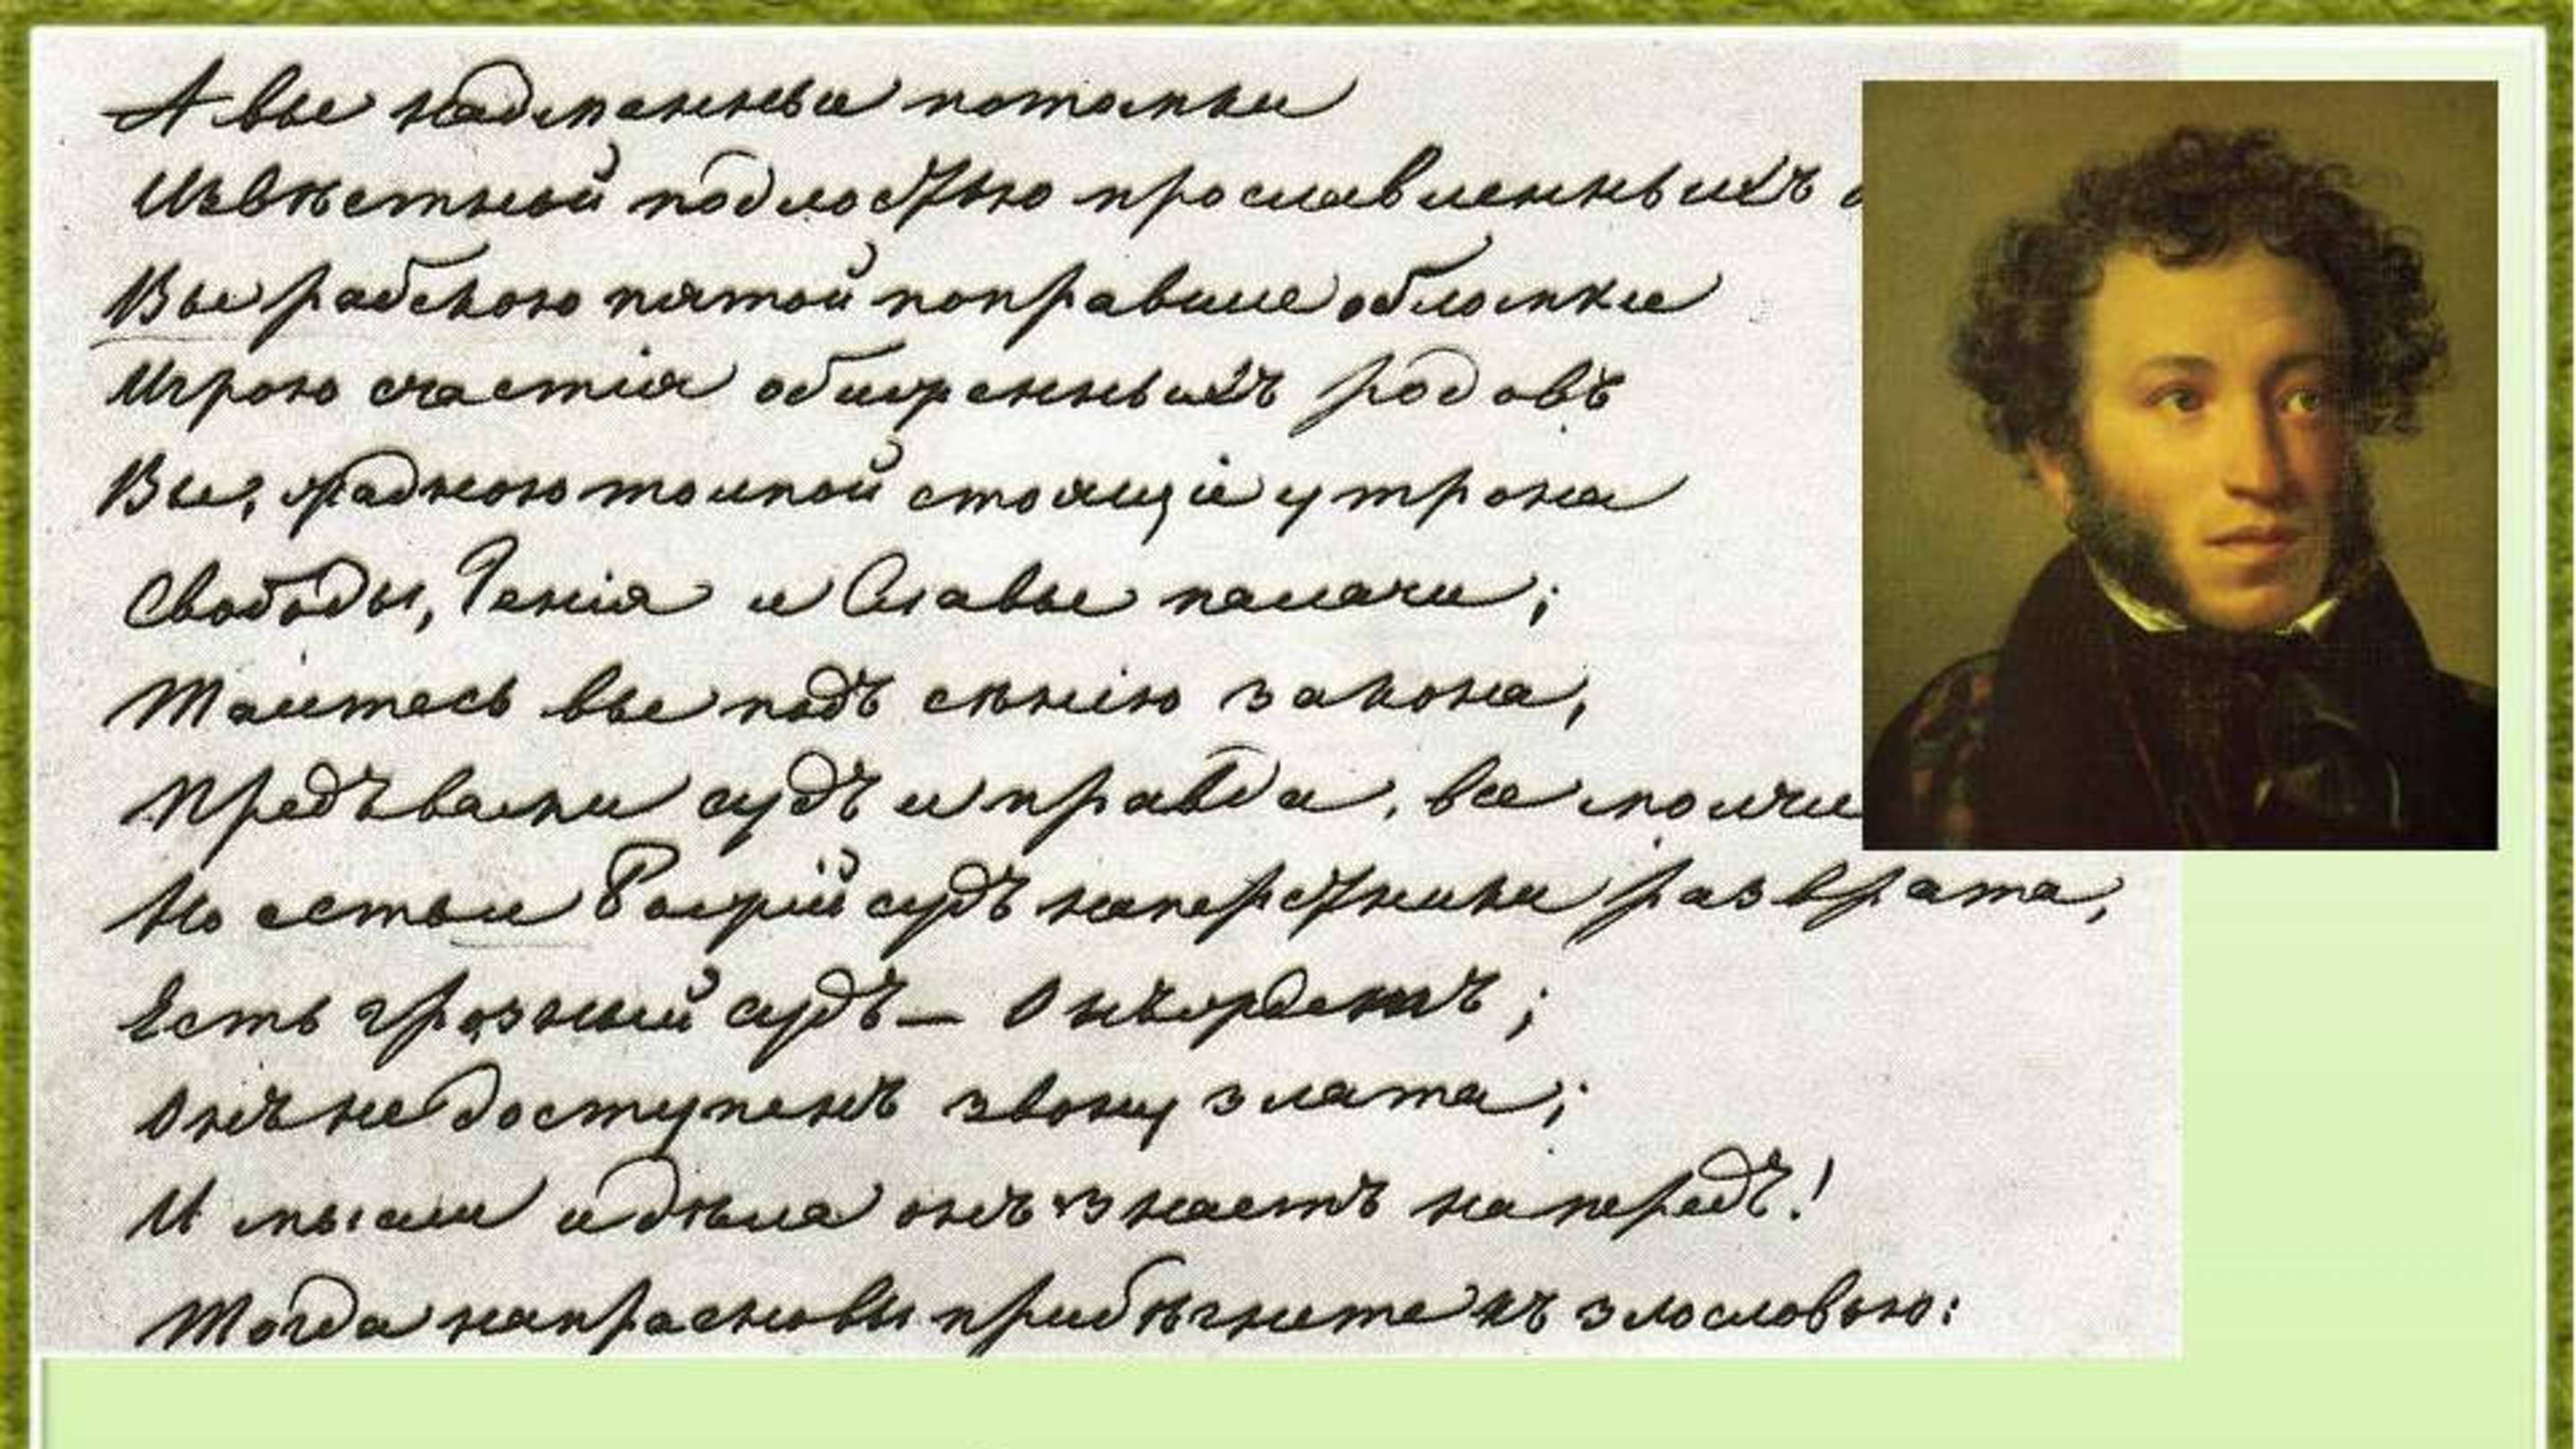 А вы надменные потомки
Извѣстной подлостью прославленныхъ
Вы рабскою пятой поправшие обломки
Игрою счастія обиженныхъ родовъ
Вы, жадною толпой стоящіе у трона
Свободы, Генія и Славы палачи;
Таитесь вы подъ сѣнію закона,
Предъ вами судъ и правда, все молчи
Но есть и Божій судъ наперстники разврата,
Есть грозный судъ — Онъ ждетъ;
Онъ не доступенъ звону злата;
И мысли и дѣла онъ знаетъ напередъ!
Тогда напрасно вы прибѣгнете къ злословью: